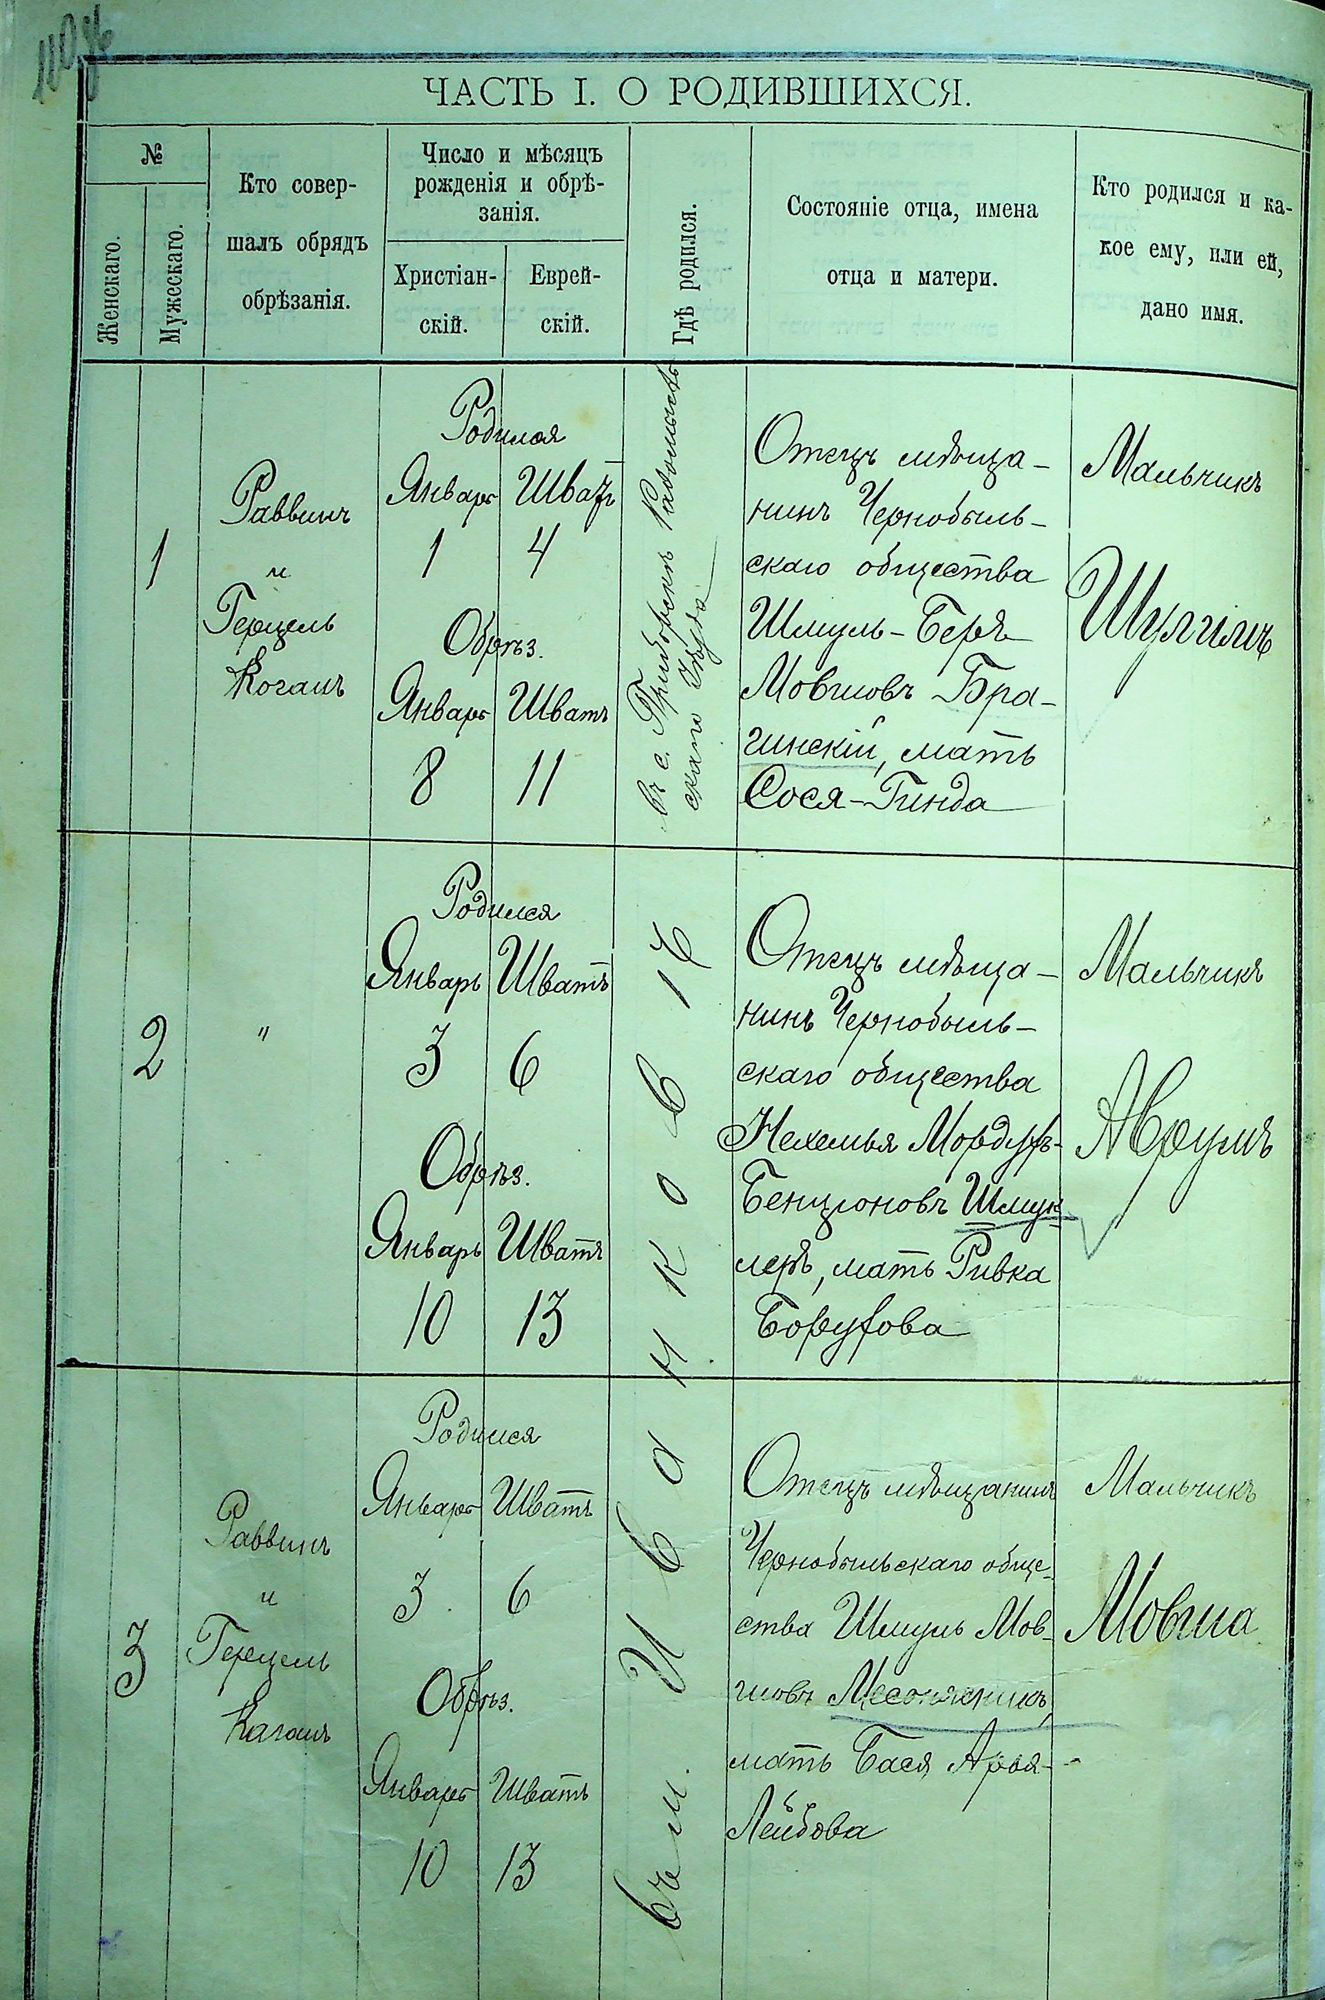 ЧАСТЬ I. О РОДИВШИХСЯ.
№
Женскаго.
Мужескаго.
Кто совер-
шалъ обрядъ
обрѣзанія.
Число и мѣсяцъ
рожденія и обрѣ-
занія.
Христіан-
скій.
Еврей-
скій.
Гдѣ родился.
Состояніе отца, имена
отца и матери.
Кто родился и ка-
кое ему, или ей,
дано имя.
1
Раввинъ
и
Герцель
Коганъ
Родился
Январь Шватъ
1 4
Обрѣз.
Январь Шватъ
8 11
въ с. Приборскъ Радомысль
скаго уѣзда
Отецъ мѣща-
нинъ Чернобыль-
скаго общества
Шмуль-Беря
Мовшовъ Бра-
гинскій, мать
Сося-Гинда
Мальчикъ
Шулимъ
2
"
Родился
Январь Шватъ
3 6
Обрѣз.
Январь Шватъ
10 13
въ м. Иванковѣ
Отецъ мѣща-
нинъ Чернобыль-
скаго общества
Нехемья Мордухъ-
Бенціоновъ Шмук
леръ, мать Ривка
Борухова
Мальчикъ
Аврумъ
3
Раввинъ
и
Герцель
Каганъ
Родился
Январь Шватъ
3 6
Обрѣз.
Январь Шватъ
10 13
Отецъ мѣщанинъ
Чернобыльскаго обще-
ства Шмуль Мов-
шовъ
мать Бася Арья-
Лейбова
Мальчикъ
Мовша